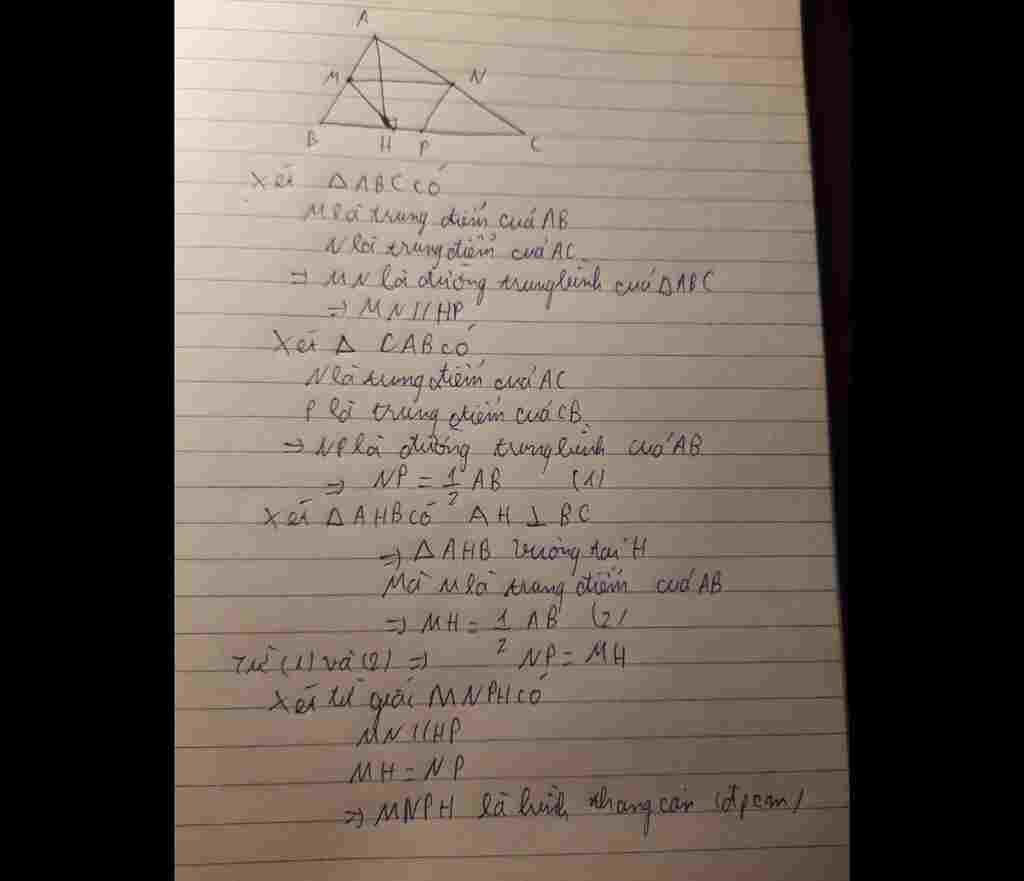 A
M
N
B
H
P
C
Xét ΔABC có
M là trung điểm của AB
N là trung điểm của AC
=> MN là đường trung bình của ΔABC
=> MN // HP
Xét Δ CAB có
N là trung điểm của AC
P là trung điểm của CB
=> NP là đường trung bình của AB
=> NP = 1/2 AB (1)
Xét ΔAHB có AH ⊥ BC
=> ΔAHB vuông tại H
Mà M là trung điểm của AB
=> MH = 1/2 AB (2)
Từ (1) và (2) => NP = MH
Xét tứ giác MNPH có
MN // HP
MH = NP
=> MNPH là hình thang cân (đpcm)